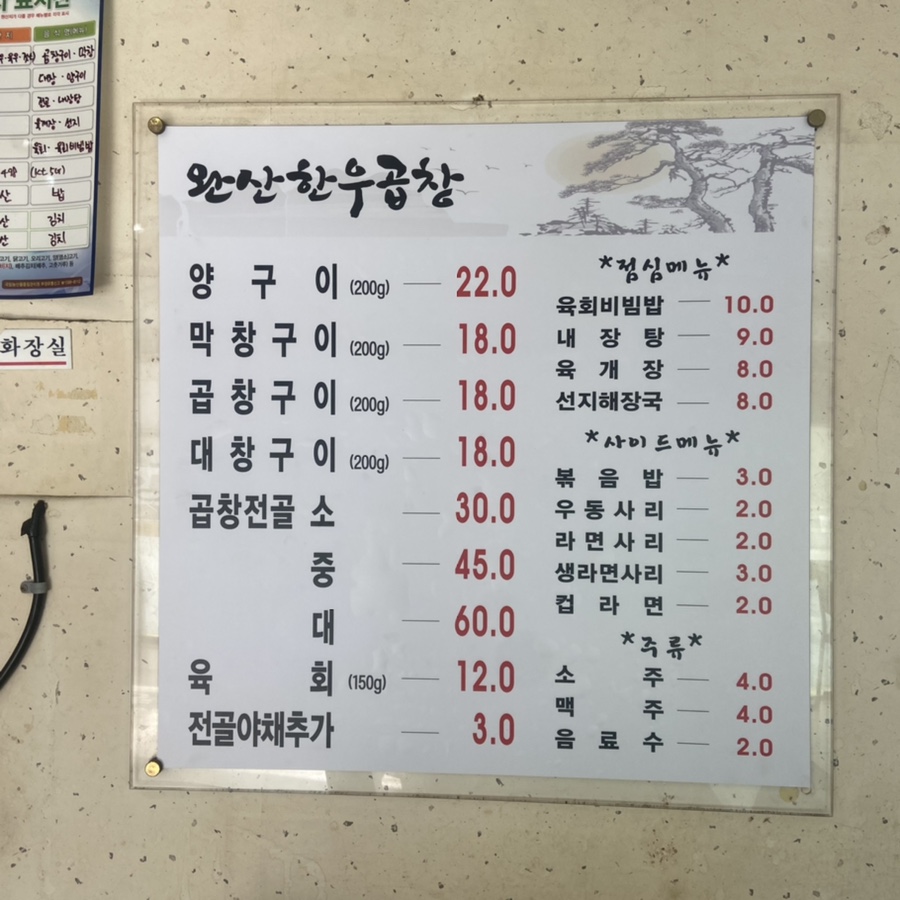 완산한우곱창
양구이 (200g) — 22.0
막창구이 (200g) — 18.0
곱창구이 (200g) — 18.0
대창구이 (200g) — 18.0
곱창전골 소 — 30.0
중 — 45.0
대 — 60.0
육회 (150g) — 12.0
전골야채추가 — 3.0
*점심메뉴*
육회비빔밥 — 10.0
내장탕 — 9.0
육개장 — 8.0
선지해장국 — 8.0
*사이드메뉴*
볶음밥 — 3.0
우동사리 — 2.0
라면사리 — 2.0
생라면사리 — 3.0
컵라면 — 2.0
*주류*
소주 — 4.0
맥주 — 4.0
음료수 — 2.0
곱창구이·막창
대창·양구이
전골·내장탕
육개장·선지
육회·육회비빔밥
산 밥
산 김치
산 김치
화장실